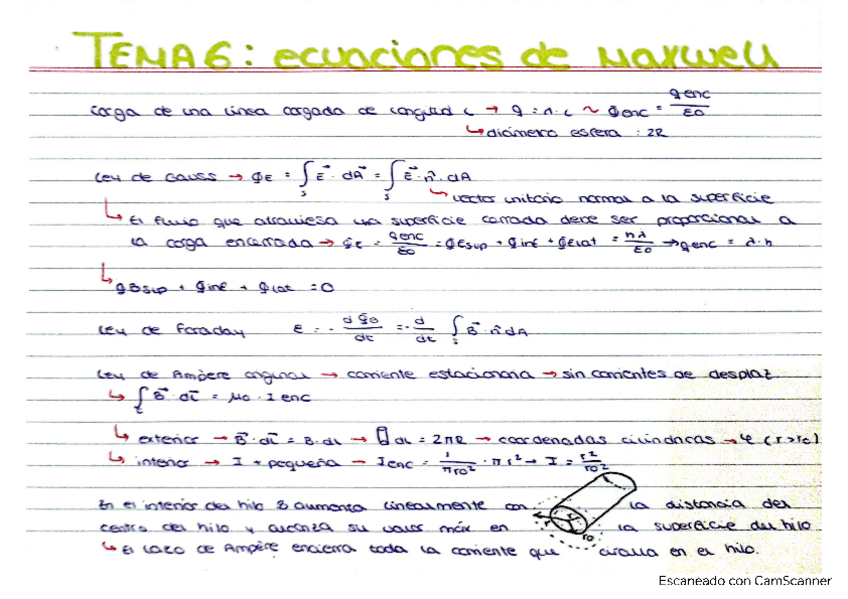 TEMA 6: ecuaciones de Maxwell
Carga de una línea cargada de longitud L → q = λ · L ~ φenc = qenc/ε0
↳ diámetro esfera : 2R
Ley de Gauss → φE = ∫s E⃗ · dA⃗ = ∫s E⃗ · n̂ · dA
↳ vector unitario normal a la superficie
↳ El flujo que atraviesa una superficie cerrada debe ser proporcional a
la carga encerrada → φE = qenc/ε0 = φEsup + φinf + φElat = hλ/ε0 → qenc = λ · h
↳ φBsup + φinf + φlat = 0
Ley de Faraday ε = - dφB/dt = - d/dt ∫s B⃗ · n̂ dA
Ley de Ampère original → corriente estacionaria → sin corrientes de desplaz
↳ ∫c B⃗ · dl⃗ = μ0 · I enc
↳ exterior → B⃗ · dl⃗ = B · dl → dl = 2πR → coordenadas cilíndricas → φ (r>r0)
↳ interior → I + pequeña → Ienc = I/πr0² · πr² → I = r²/r0²
En el interior del hilo B aumenta linealmente con la distancia del
centro del hilo y alcanza su valor máx en la superficie del hilo
↳ El lazo de Ampère encierra toda la corriente que circula en el hilo.
Escaneado con CamScanner